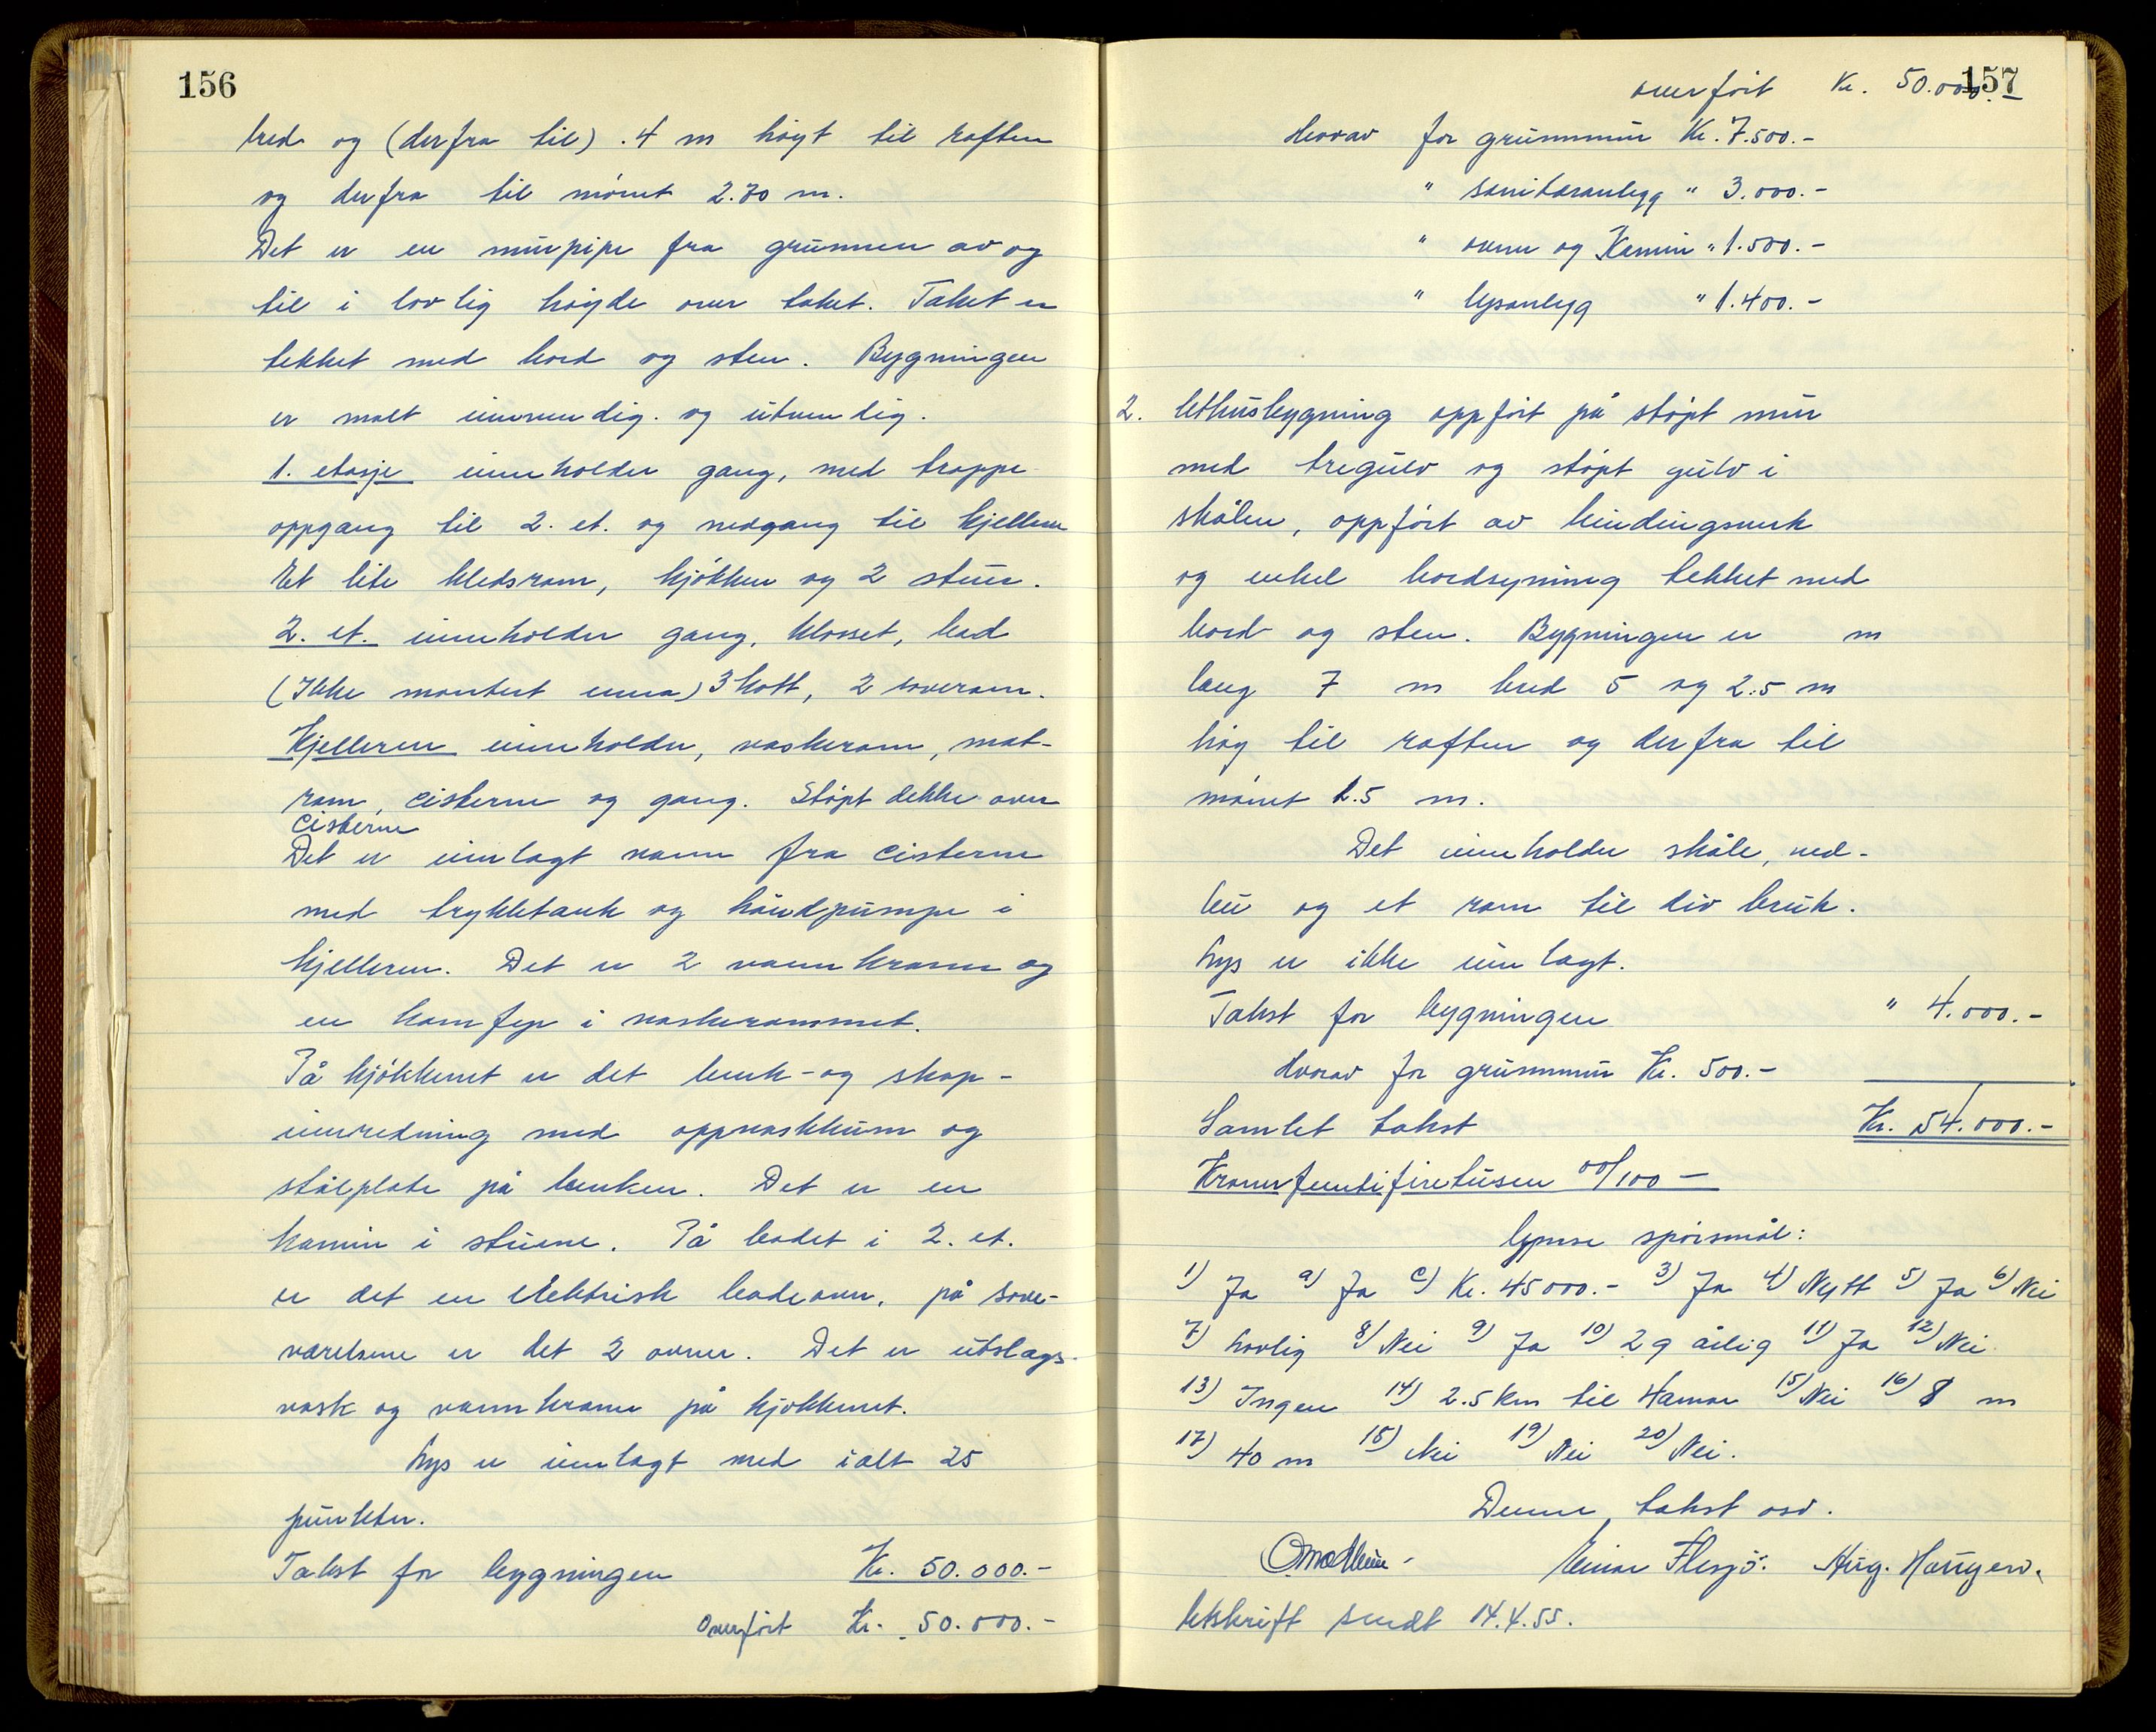 156
bred og (derfra til) .4 m høyt til raften
og derfra til mønet 2.70 m.
Det er en murpipe fra grunnen av og
til i lovlig høyde over taket. Taket er
tekket med bord og sten. Bygningen
er malt innvendig. og utvendig.
1. etasje inneholder gang, med trappe
oppgang til 2. et. og nedgang til kjelleren
Et lite kledsrom, kjøkken og 2 stuer.
2. et. inneholder gang, klosset, bad
(Ikke montert enna) 3 kott, 2 soverom.
Kjelleren inneholder, vaskerom, mat-
rom, cisterne og gang. Støpt dekke over
cisterne
Det er innlagt vann fra cisterne
med trykktank og håndpumpe i
kjelleren. Det er 2 vannkraner og
en komfyr i vaskerommet.
På kjøkkenet er det benk- og skap-
innredning med oppvaskkum og
stålplate på benken. Det er en
kamin i stuene. På badet i 2. et.
er det en elektrisk badeovn, på sove-
værelsene er det 2 ovner. Det er utslags-
vask og vannkraner på kjøkkenet.
Lys er innlagt med ialt 25
punkter.
Takst for bygningen Kr. 50.000.-
Overført Kr. 50.000.-
157
overført Kr. 50.000.-
Hvorav for grunnmur Kr. 7.500.-
" sanitæranlegg " 3.000.-
" ovner og Kamin " 1.500.-
" lysanlegg " 1.400.-
2. Uthusbygning oppført på støpt mur
med tregulv og støpt gulv i
skålen, oppført av bindingsverk
og enkel bordkyning tekket med
bord og sten. Bygningen er m
lang 7 m bred 5 og 2.5 m
høg til raften og derfra til
mønet 1.5 m.
Det inneholder skåle, ved-
bu og et rom til div bruk.
Lys er ikke innlagt.
Takst for bygningen " 4.000.-
Hvorav for grunnmur Kr. 500.-
Samlet takst Kr. 54.000.-
Kronerfemtifiretusen 00/100 -
Lymse spørsmål:
1) Ja a) Ja c) Kr. 45000.- 3) Ja 4) Nytt 5) Ja 6) Nei
7) Lovlig 8) Nei 9) Ja 10) 2 g årlig 11) Ja 12) Nei
13) Ingen 14) 2.5 km til Hamar 15) Nei 16) 8 m
17) 40 m 18) Nei 19) Nei 20) Nei.
Denne takst osv.
Einar Flesjø. Aug. Haugen.
Utskrift sendt 14.4.55.